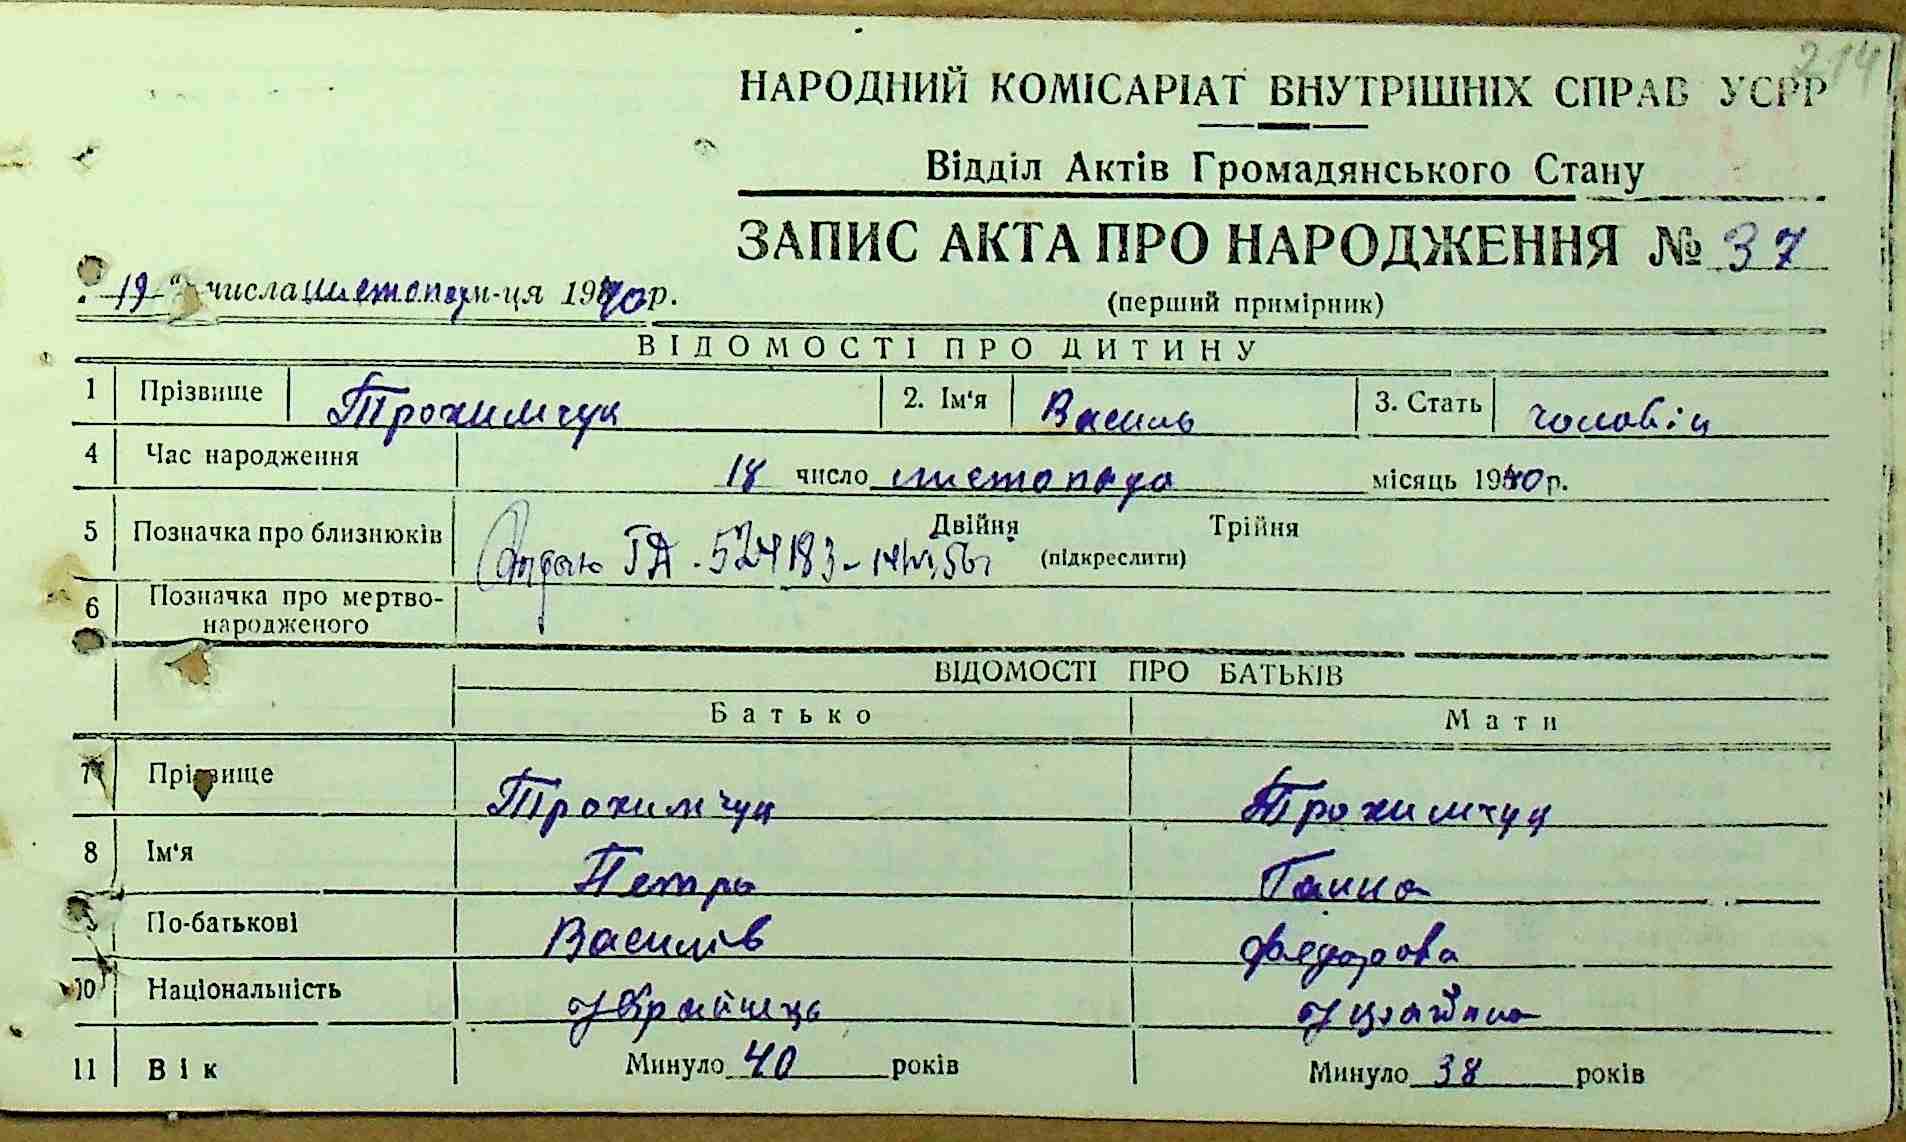 214
НАРОДНИЙ КОМІСАРІАТ ВНУТРІШНІХ СПРАВ УСРР
Відділ Актів Громадянського Стану
ЗАПИС АКТА ПРО НАРОДЖЕННЯ № 37
19 " числа листопад м-ця 1940 р.
(перший примірник)
ВІДОМОСТІ ПРО ДИТИНУ
1 Прізвище Трохимчук 2. Ім'я Василь 3. Стать чоловіч
4 Час народження 18 число листопада місяць 1940 р.
5 Позначка про близнюків Двійня Трійня
ГА - 524183 - (підкреслити)
6 Позначка про мертво-
народженого
ВІДОМОСТІ ПРО БАТЬКІВ
Батько Мати
7 Прізвище Трохимчук Трохимчук
8 Ім'я Петро Ганна
9 По-батькові Василів Федорова
10 Національність Українець Українка
11 Вік Минуло 40 років Минуло 38 років